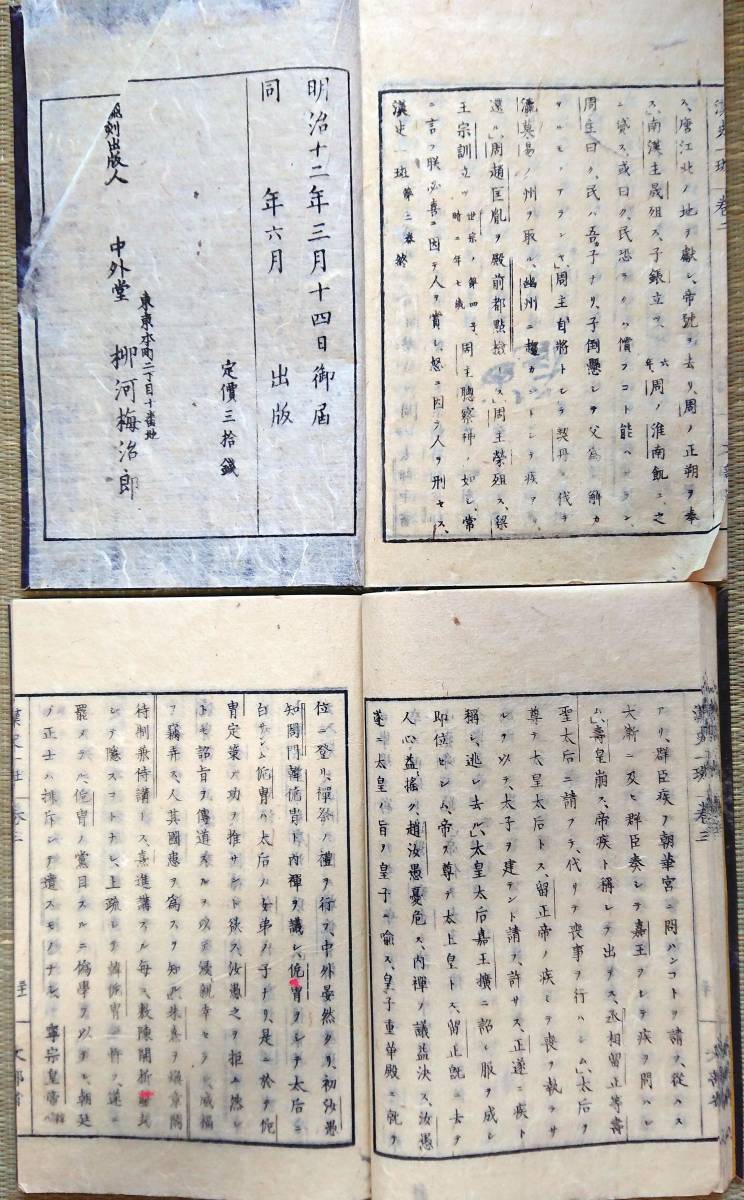 漢史一斑 卷二
ス、唐江北ノ地ヲ獻シ、帝號ヲ去リ、周ノ正朔ヲ奉
ス、南漢主晟殂ス、子鋹立ツ、六年周ノ淮南飢ユ、之
ニ貸ス、或曰ク、民恐ラクハ償フコト能ハサラン、
周主曰ク、民ハ吾子ナリ、子倒懸シテ父為ニ解カ
サルモノアランヤ、周主自將トシテ契丹ヲ伐チ
瀛莫易ノ州ヲ取ル、幽州ニ趣カントシテ疾アリ、
還ル、周趙匡胤ヲ殿前都點檢トス、周主榮殂ス、梁
王宗訓立ツ 世宗ノ第四子時ニ年七歳 周主聰察神ノ如シ、常
ニ言フ朕必喜ニ因テ人ヲ賞シ、怒ニ因テ人ヲ刑セス、
漢史一斑第二卷終
明治十二年三月十四日御届
同 年六月 出版
定價三拾錢
飜刻出版人
東京本町二丁目十番地
中外堂 柳河梅治郎
漢史一斑 卷三
文部省
アリ、群臣疾ヲ朝華宮ニ問ハンコトヲ請フ、從ハス
大漸ニ及ヒ群臣奏シテ嘉王ヲシテ疾ヲ問ハシ
ム、壽皇崩ス、帝疾ト稱シテ出テス、丞相留正等壽
聖太后ニ請フテ、代リテ喪事ヲ行ハシム、太后ヲ
尊テ太皇太后トス、留正帝ノ疾シテ喪ヲ執ラサ
ルヲ以テ、太子ヲ建テント請フ、許サス、正遂ニ疾ト
稱シ、逃レ去ル、太皇太后嘉王擴ニ詔シ服ヲ成シ
即位セシム、帝ヲ尊テ太上皇トス、留正既ニ去テ
人心益搖ク、趙汝愚憂危ス、内禪ノ議益決ス、汝愚
遂ニ太皇ノ旨ヲ皇子ニ喩ス、皇子重華殿ニ就テ
位ニ登リ、禪祭ノ禮ヲ行フ、中外晏然タリ、初汝愚
知閤門韓侂冑ト内禪ヲ議シ、侂冑ヲシテ太后ニ
白サシム、侂冑ハ太后ノ女弟ノ子ナリ、是ニ於テ侂
冑定策ノ功ヲ推サント欲ス、汝愚之ヲ拒ム、然レ
トモ詔旨ヲ傳道スルヲ以テ寖親幸セラレ、威福
ヲ竊弄ス、人其國患ヲ為スヲ知ル、朱熹ヲ煥章閣
待制兼侍講トス、熹進講スル毎ニ、敷陳開析
シテ隠スコトナシ、上疏シテ韓侂冑ニ忤ヲ、遂ニ
罷メラル、侂冑ノ黨目スルニ偽學ヲ以テシ、朝廷
ノ正士ハ排斥シテ遺スモノナシ、寧宗皇帝ハ
漢史一斑 卷三
三十一
文部省